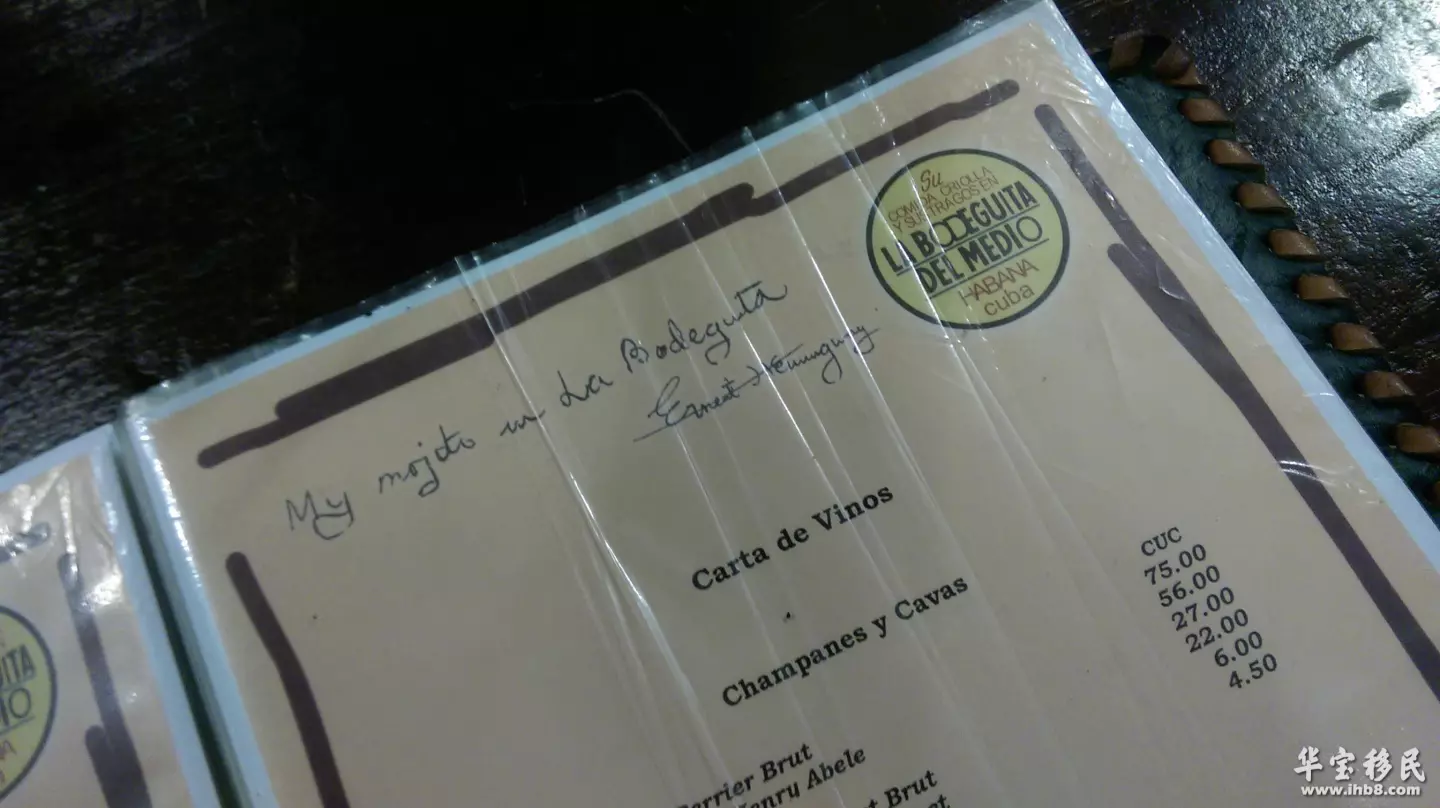 Su
COMIDA CRIOLLA
Y SUS TRAGOS EN
LA BODEGUITA
DEL MEDIO
HABANA
cuba
My mojito in La Bodeguita
Ernest Hemingway
Carta de Vinos
CUC
Champanes y Cavas
75.00
56.00
27.00
22.00
6.00
4.50
Perrier Brut
Henry Abele
Brut
华宝移民
www.ihb8.com